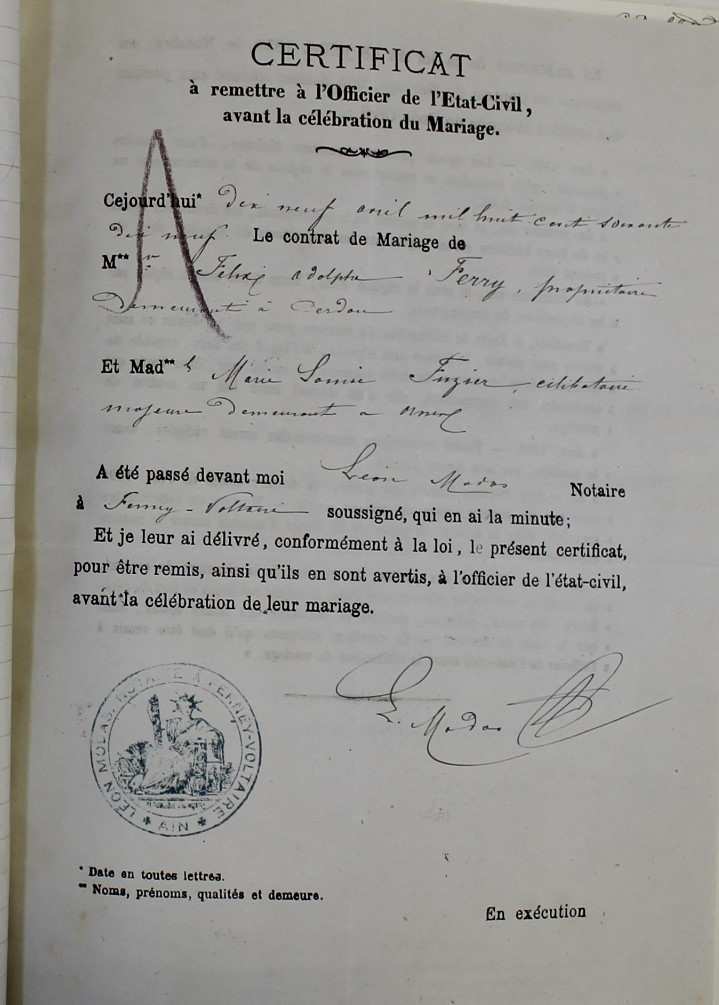 CERTIFICAT
à remettre à l'Officier de l'Etat-Civil,
avant la célébration du Mariage.
A
Cejourd'hui* dix neuf avril mil huit cent soixante
dix neuf. Le contrat de Mariage de
M** r Félix adolphe Ferry, propriétaire
Demeurant à Cerdon
Et Mad** lle Marie Fuzier, célibataire
majeure demeurant a ornex
A été passé devant moi Léon Modas Notaire
à Ferney-Voltaire soussigné, qui en ai la minute;
Et je leur ai délivré, conformément à la loi, le présent certificat,
pour être remis, ainsi qu'ils en sont avertis, à l'officier de l'état-civil,
avant la célébration de leur mariage.
L. Modas
LÉON MODAS, NOTAIRE A FERNEY-VOLTAIRE
AIN
* Date en toutes lettres.
** Noms, prénoms, qualités et demeure.
En exécution